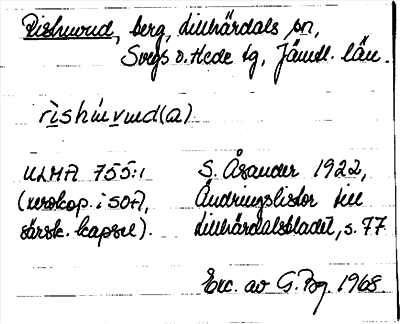 Rishuvud, berg, Lillhärdals sn,
Svegs o. Hede tg, Jämtl. län.
rìshúvud(a)
ULMA 755:1 S. Åsander 1922,
(xerokop. i SOA, Ändringslistor till
särsk. kapsel). Lillhärdalsbladet, s. 77.
Exc. av G. Pog. 1968